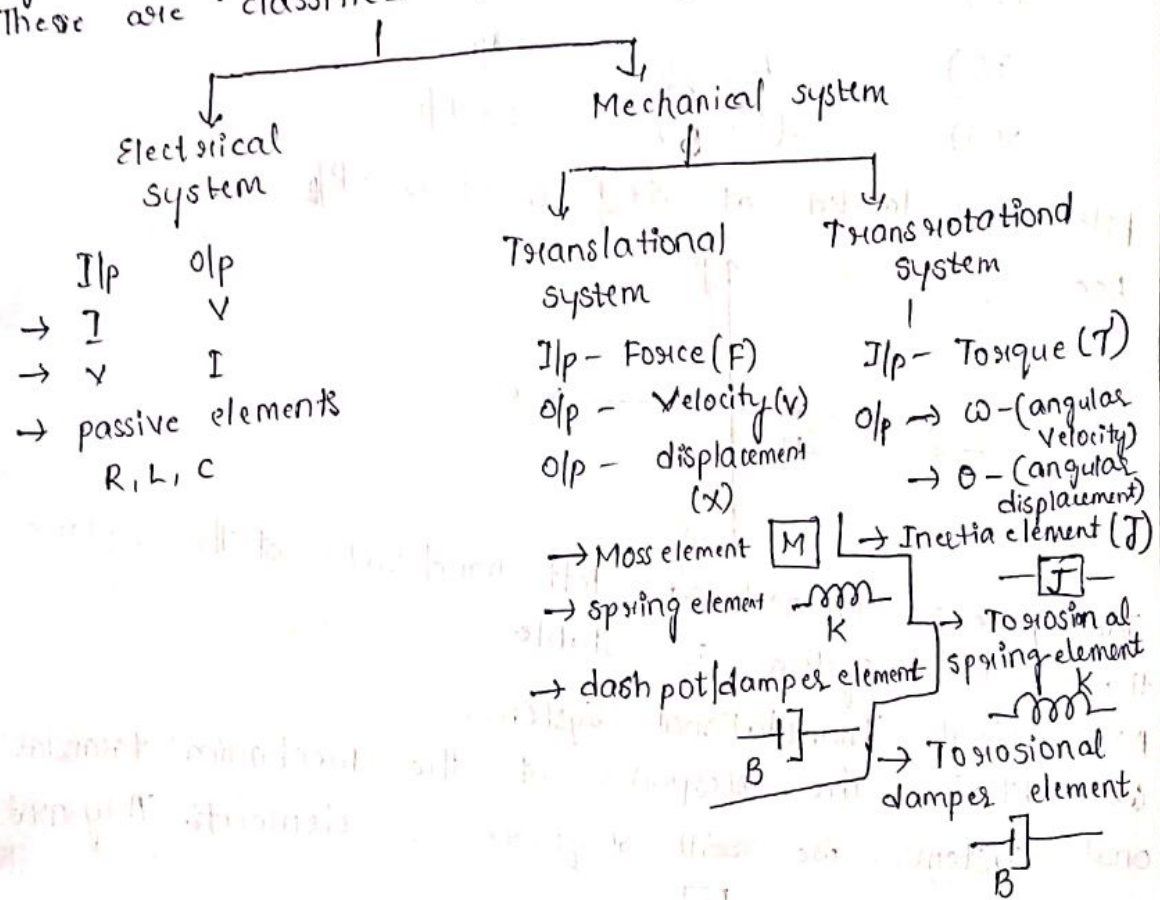 These are
Mechanical system
Electrical
system
I/p O/p
→ I V
→ V I
→ passive elements
R, L, C
Translational
system
I/p - Force (F)
O/p - Velocity (v)
O/p - displacement
(x)
→ Moss element M
→ spring element
K
→ dash pot/damper element
B
Transrotationd
system
I/p - Torque (T)
O/p → ω - (angular
velocity)
→ θ - (angular
displacement)
→ Inertia element (J)
J
→ Torosional
spring element
K
→ Torosional
damper element
B